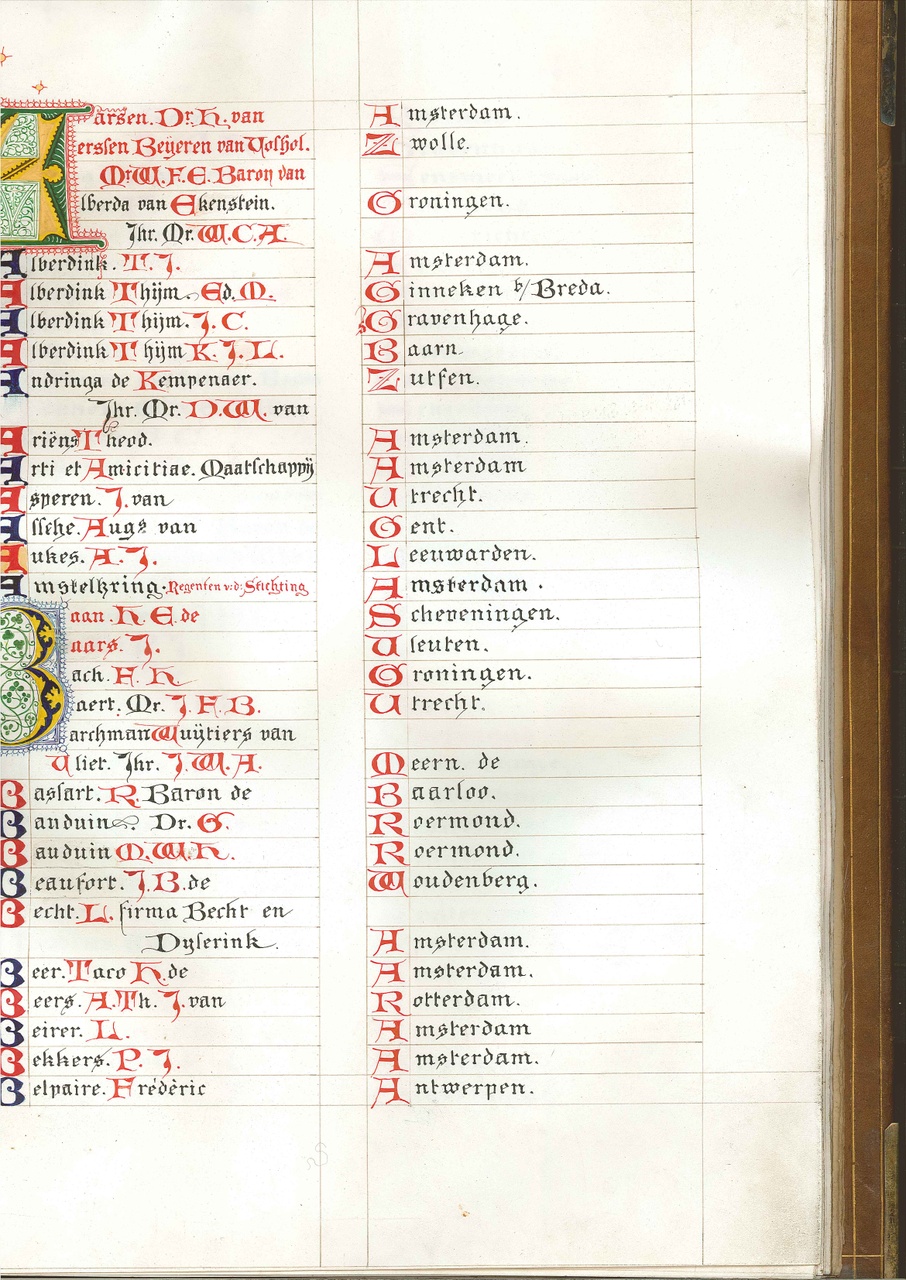 Aarsen. Dr. H. van Amsterdam.
Aerssen Beyeren van Voshol. Zwolle.
Mr. W. F. E. Baron van
Alberda van Ekenstein. Groningen.
Jhr. Mr. W. C. A.
Alberdink. T. J. Amsterdam.
Alberdink Thijm. Ed. M. Ginneken b/Breda.
Alberdink Thijm. J. C. 's Gravenhage.
Alberdink Thijm K. J. L. Baarn
Andringa de Kempenaer. Zutfen.
Jhr. Mr. D. W. van
Ariëns Theod. Amsterdam.
Arti et Amicitiae. Maatschappij Amsterdam
Asperen. J. van Utrecht.
Assche. Augs van Gent.
Aukes. A. J. Leeuwarden.
Amstelkring. Regenten v: d: Stichting Amsterdam.
Baan. H. E. de Scheveningen.
Baars. J. Vleuten.
Bach. F. H. Groningen.
Baert. Mr. J. F. B. Utrecht.
Barchman Wuÿtiers van
Vliet. Jhr. J. W. A. Meern. de
Bassart. R. Baron de Baarloo.
Bauduin Dr. G. Roermond.
Bauduin M. W. H. Roermond.
Beaufort. J. B. de Woudenberg.
Becht. L. firma Becht en
Dyserink. Amsterdam.
Beer. Taco H. de Amsterdam.
Beers. A. Th. J. van Rotterdam.
Beirer. L. Amsterdam
Bekkers. P. J. Amsterdam.
Belpaire. Frédéric Antwerpen.